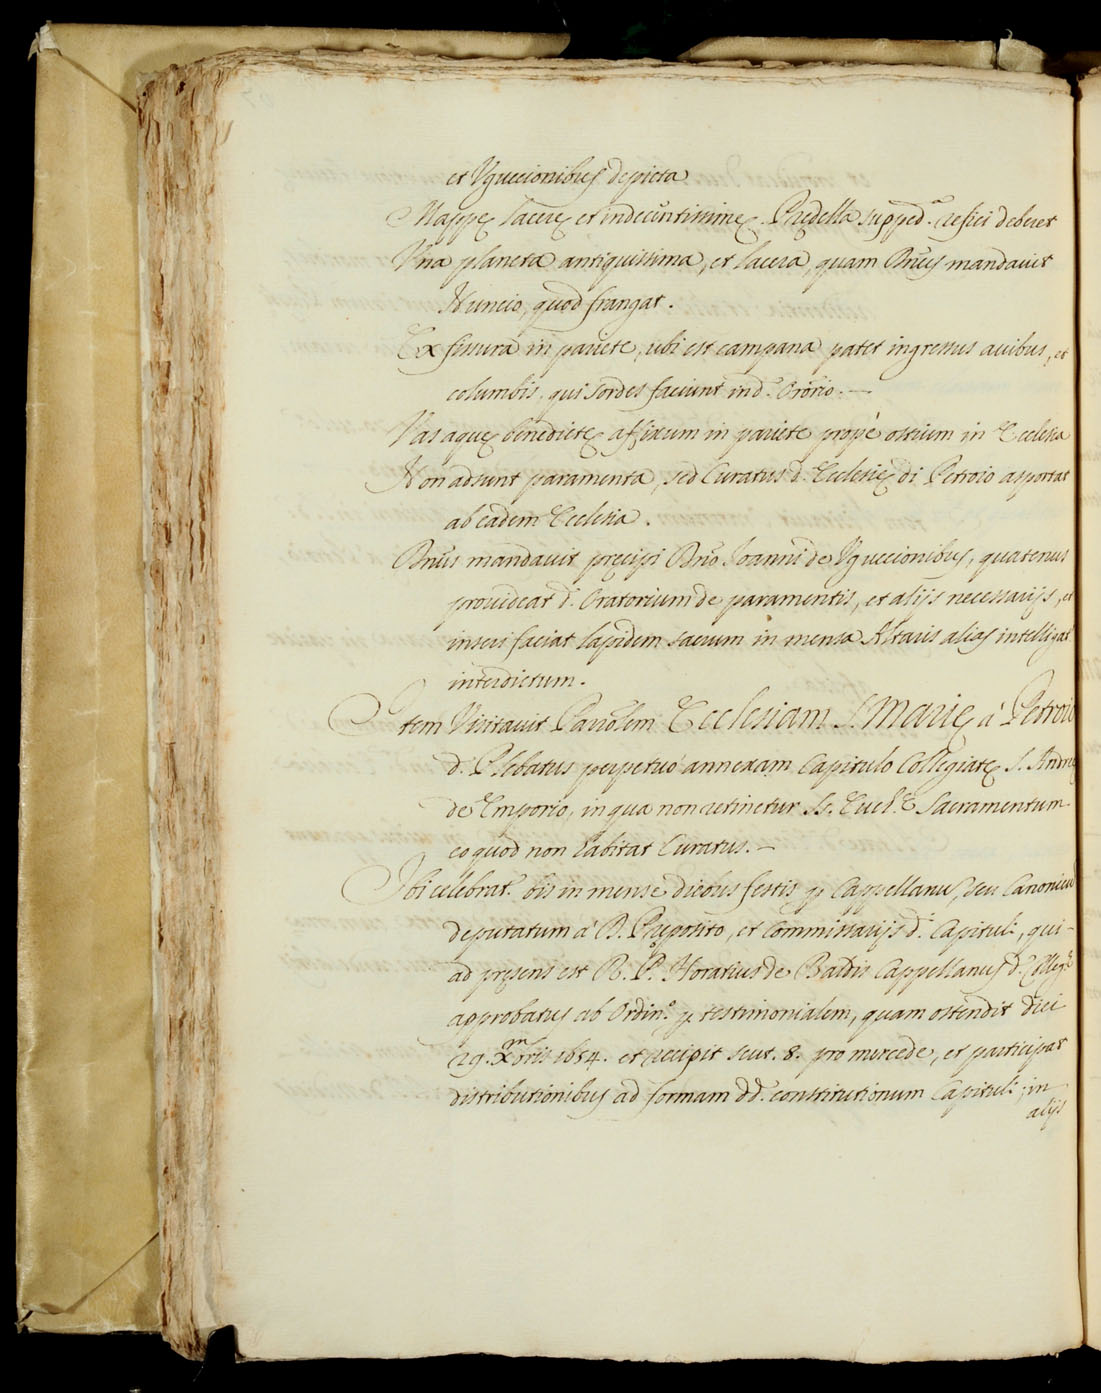 et Vguccionibus depicta
Mappę lacerę et indecentissimę. Predella supped.ᵃ refici deberet
Vna planeta antiquissima, et lacera, quam Bñus mandauit
Nuncio, quod frangat.
Ex fissura in pariete, ubi est campana patet ingressus auibus, et
columbis, qui sordes faciunt in d.º Orõrio. —
Vas aquę benedictę affixum in pariete propè ostium in Ecclesia
Non adsunt paramenta, sed Curatus d.ę Ecclesię di Petroio asportat
ab eadem Ecclesia.
Bñus mandauit pręcipi Dño Ioanni de Vguccionibus, quatenus
prouideat d. Oratorium de paramentis, et alijs necessarijs, et
inseri faciat lapidem sacrum in mensa Altaris alias intelligat
interdictum.
Item Visitauit Parõlem Ecclesiam S. Marię à Petroio
d. Plebatus perpetuò annexam Capitulo Collegiatę S. Andreę
de Emporio, in qua non retinetur SS. Euch.ę Sacramentum
eo quod non habitat Curatus. —
Ibi celebrat.ʳ bis in mense diebus festis p Cappellanũ, seu Canonicũ
deputatum à D. Pręposito, et Commissarijs d.ⁱ Capituli, qui
ad pręsens est R. P. Horatius de Baldis Cappellanus d.ę Colleg.ę
approbatus ab Ordin.º p testimonialem, quam ostendit diei
29. Xm̃bris 1654. et recipit scut. 8. pro mercede, et participat
distributionibus ad formam dd. constitutionum Capituli; in
alijs